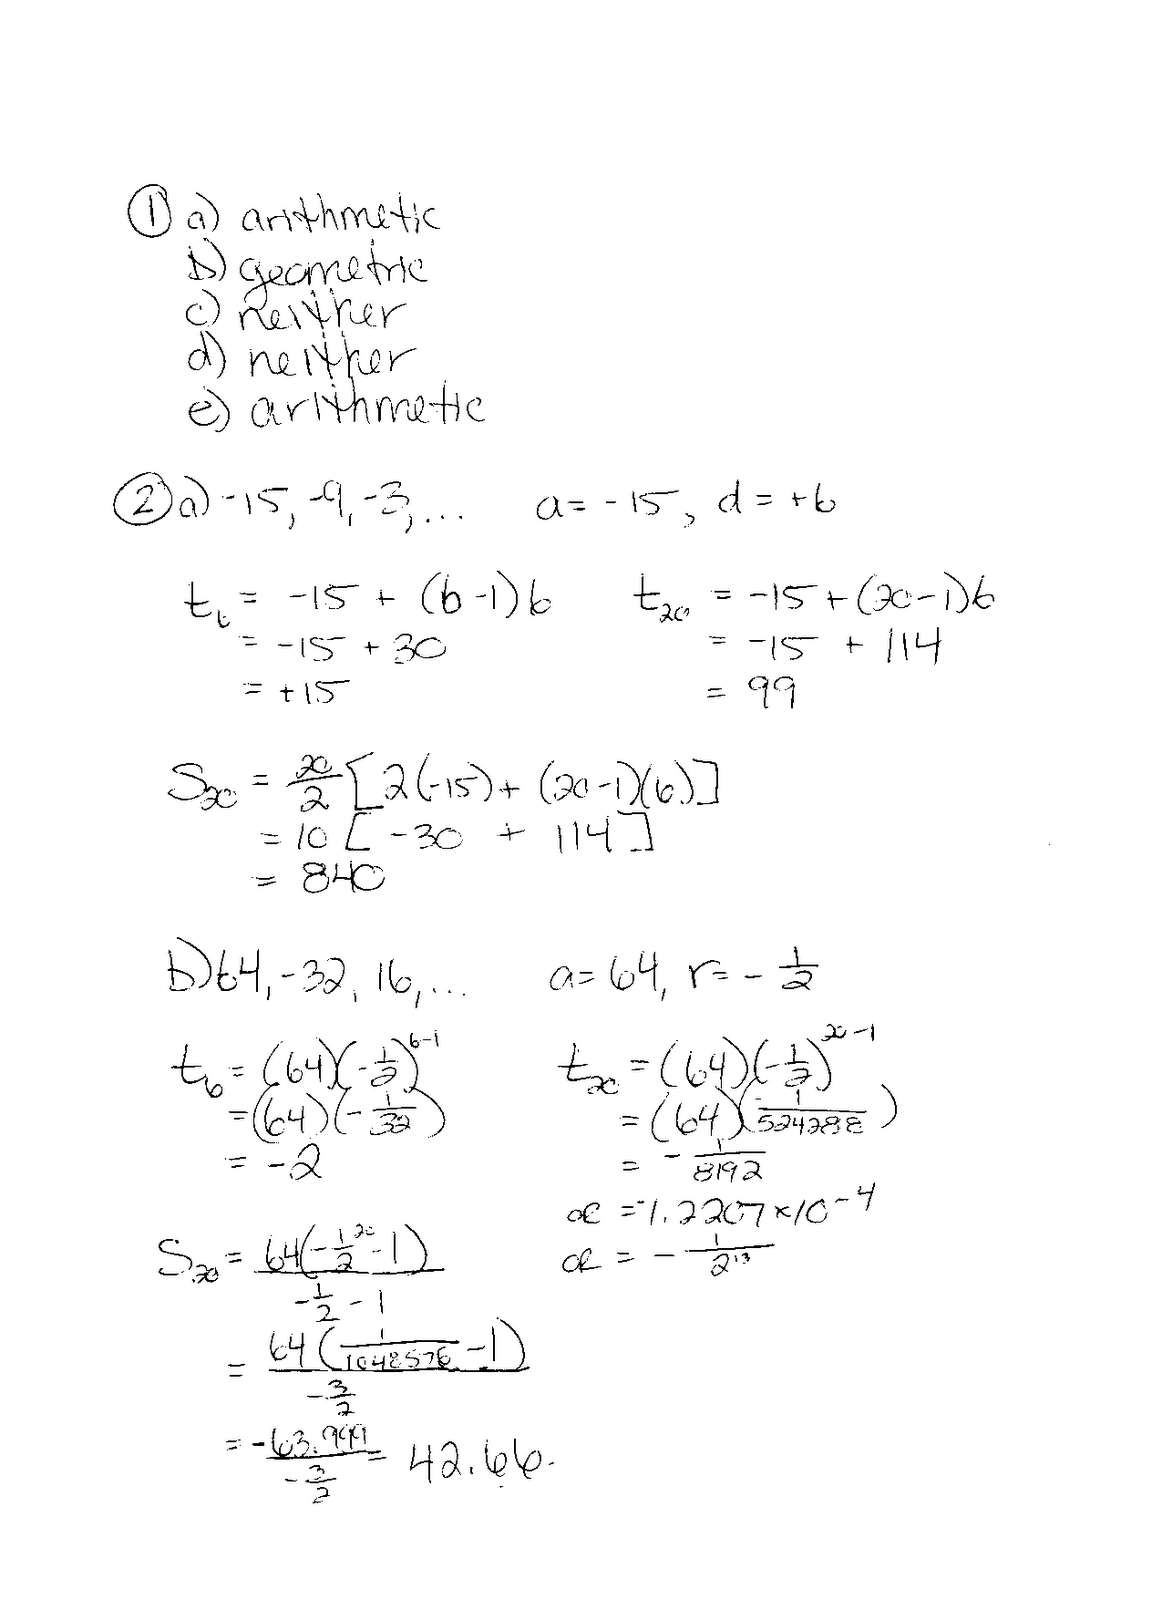 ① a) arithmetic
b) geometric
c) neither
d) neither
e) arithmetic
② a) -15, -9, -3, ... a = -15, d = +6
t₆ = -15 + (6-1)6 t₂₀ = -15 + (20-1)6
= -15 + 30 = -15 + 114
= +15 = 99
S₂₀ = 20/2 [2(-15) + (20-1)(6)]
= 10 [-30 + 114]
= 840
b) 64, -32, 16, ... a = 64, r = - 1/2
t₆ = (64)(-1/2)^(6-1) t₂₀ = (64)(-1/2)^(20-1)
= (64)(-1/32) = (64)(-1/524288)
= -2 = - 1/8192
or = -1.2207 × 10^-4
S₂₀ = 64(-1/2^20 - 1) / (-1/2 - 1) or = - 1/2^13
= 64(1/1048576 - 1) / (-3/2)
= -63.999 / (-3/2) = 42.66.